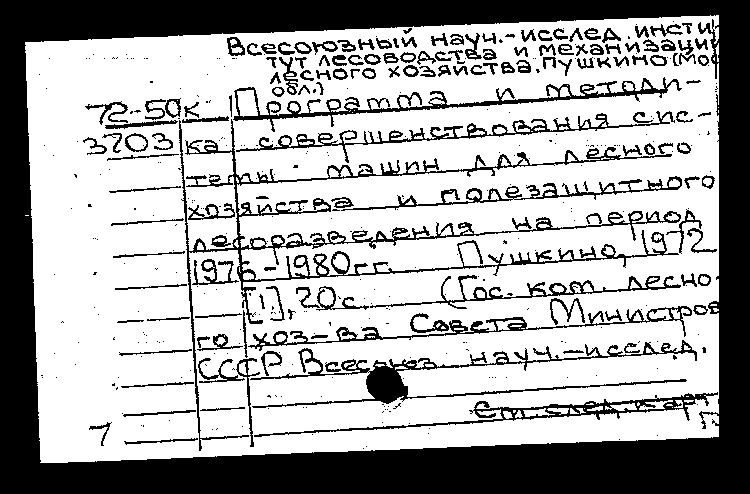 Всесоюзный науч.-исслед. инсти
тут лесоводства и механизации
лесного хозяйства. Пушкино (Мос
обл.)
72-50к Программа и методи-
3703 ка совершенствования сис-
темы машин для лесного
хозяйства и полезащитного
лесоразведения на период
1976-1980гг. Пушкино, 1972
[1], 20с. (Гос. ком. лесно-
го хоз-ва Совета Министров
СССР. Всесоюз. науч.-исслед.
См. след. карт.
1